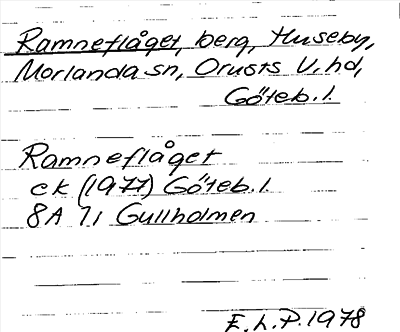 Ramneflåget, berg, Huseby,
Morlanda sn, Orusts V. hd,
Göteb. l.
Ramneflåget
ek (1977) Göteb. l.
8A 7i Gullholmen
E.L.P. 1978